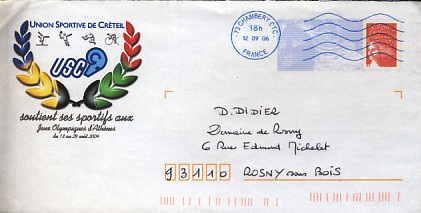 UNION SPORTIVE DE CRÉTEIL
USC
soutient ses sportifs aux
Jeux Olympiques d'Athènes
du 13 au 29 août 2004
77 CHAMBERY CTC
18h
12 09 06
FRANCE
D. DIDIER
Domaine de Rosny
6 Rue Edmund Michelet
93110 ROSNY sous BOIS